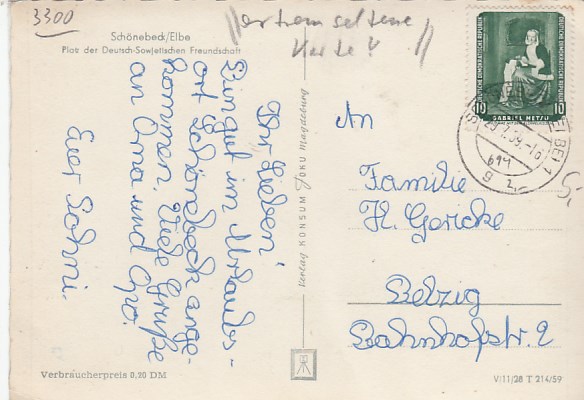 3300
extrem seltene
Karte!
Schönebeck/Elbe
Platz der Deutsch-Sowjetischen Freundschaft
Ihr Lieben!
Sind gut im Urlaubs-
ort Schönebeck ange-
kommen. Viele Grüße
an Oma und Opa.
Euer
Verbraucherpreis 0,20 DM
Verlag KONSUM FOKU Magdeburg
DEUTSCHE DEMOKRATISCHE REPUBLIK
DEUTSCHE DEMOKRATISCHE REPUBLIK
10
10
GABRIEL METSU
An
Familie
H. Gericke
Belzig
Bahnhofstr. 2
V/11/28 T 214/59